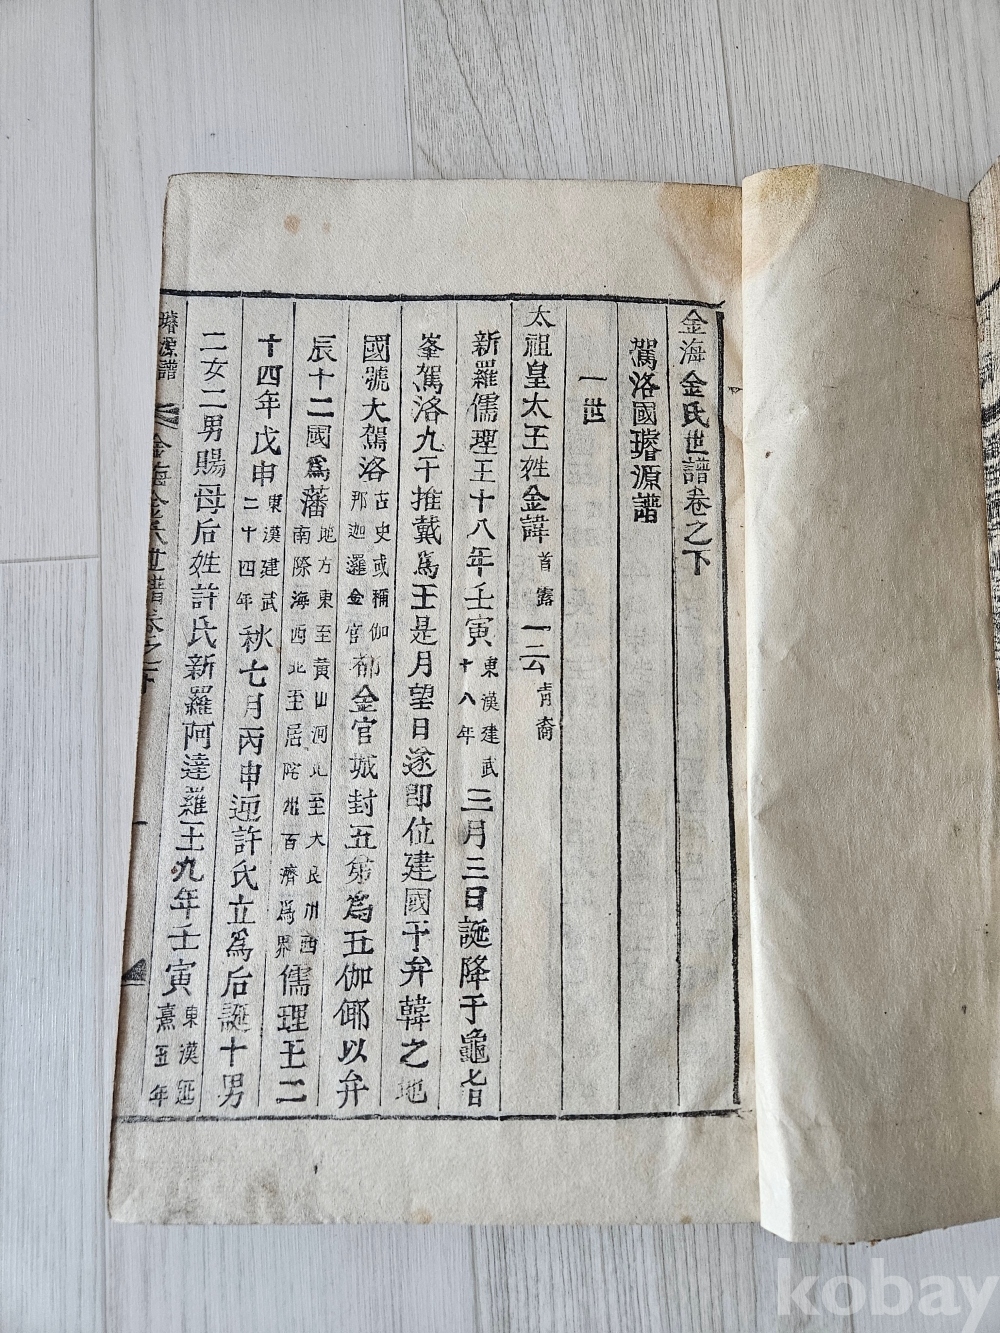 金海金氏世譜卷之下
駕洛國璿源譜
一世
太祖皇太王姓金諱首露一云青裔
新羅儒理王十八年壬寅東漢建武十八年三月三日誕降于龜旨
峯駕洛九干推戴爲王是月望日遂即位建國于弁韓之地
國號大駕洛古史或稱伽那迦邏金官都金官城封五弟爲五伽倻以弁
辰十二國爲藩地方東至黃山河北至大良州西南際海西北至居陀州百濟爲界儒理王二
十四年戊申東漢建武二十四年秋七月丙申迎許氏立爲后誕十男
二女二男賜母后姓許氏新羅阿達羅王九年壬寅東漢延熹五年
璿源譜 金海金氏世譜卷之下 一
kobay